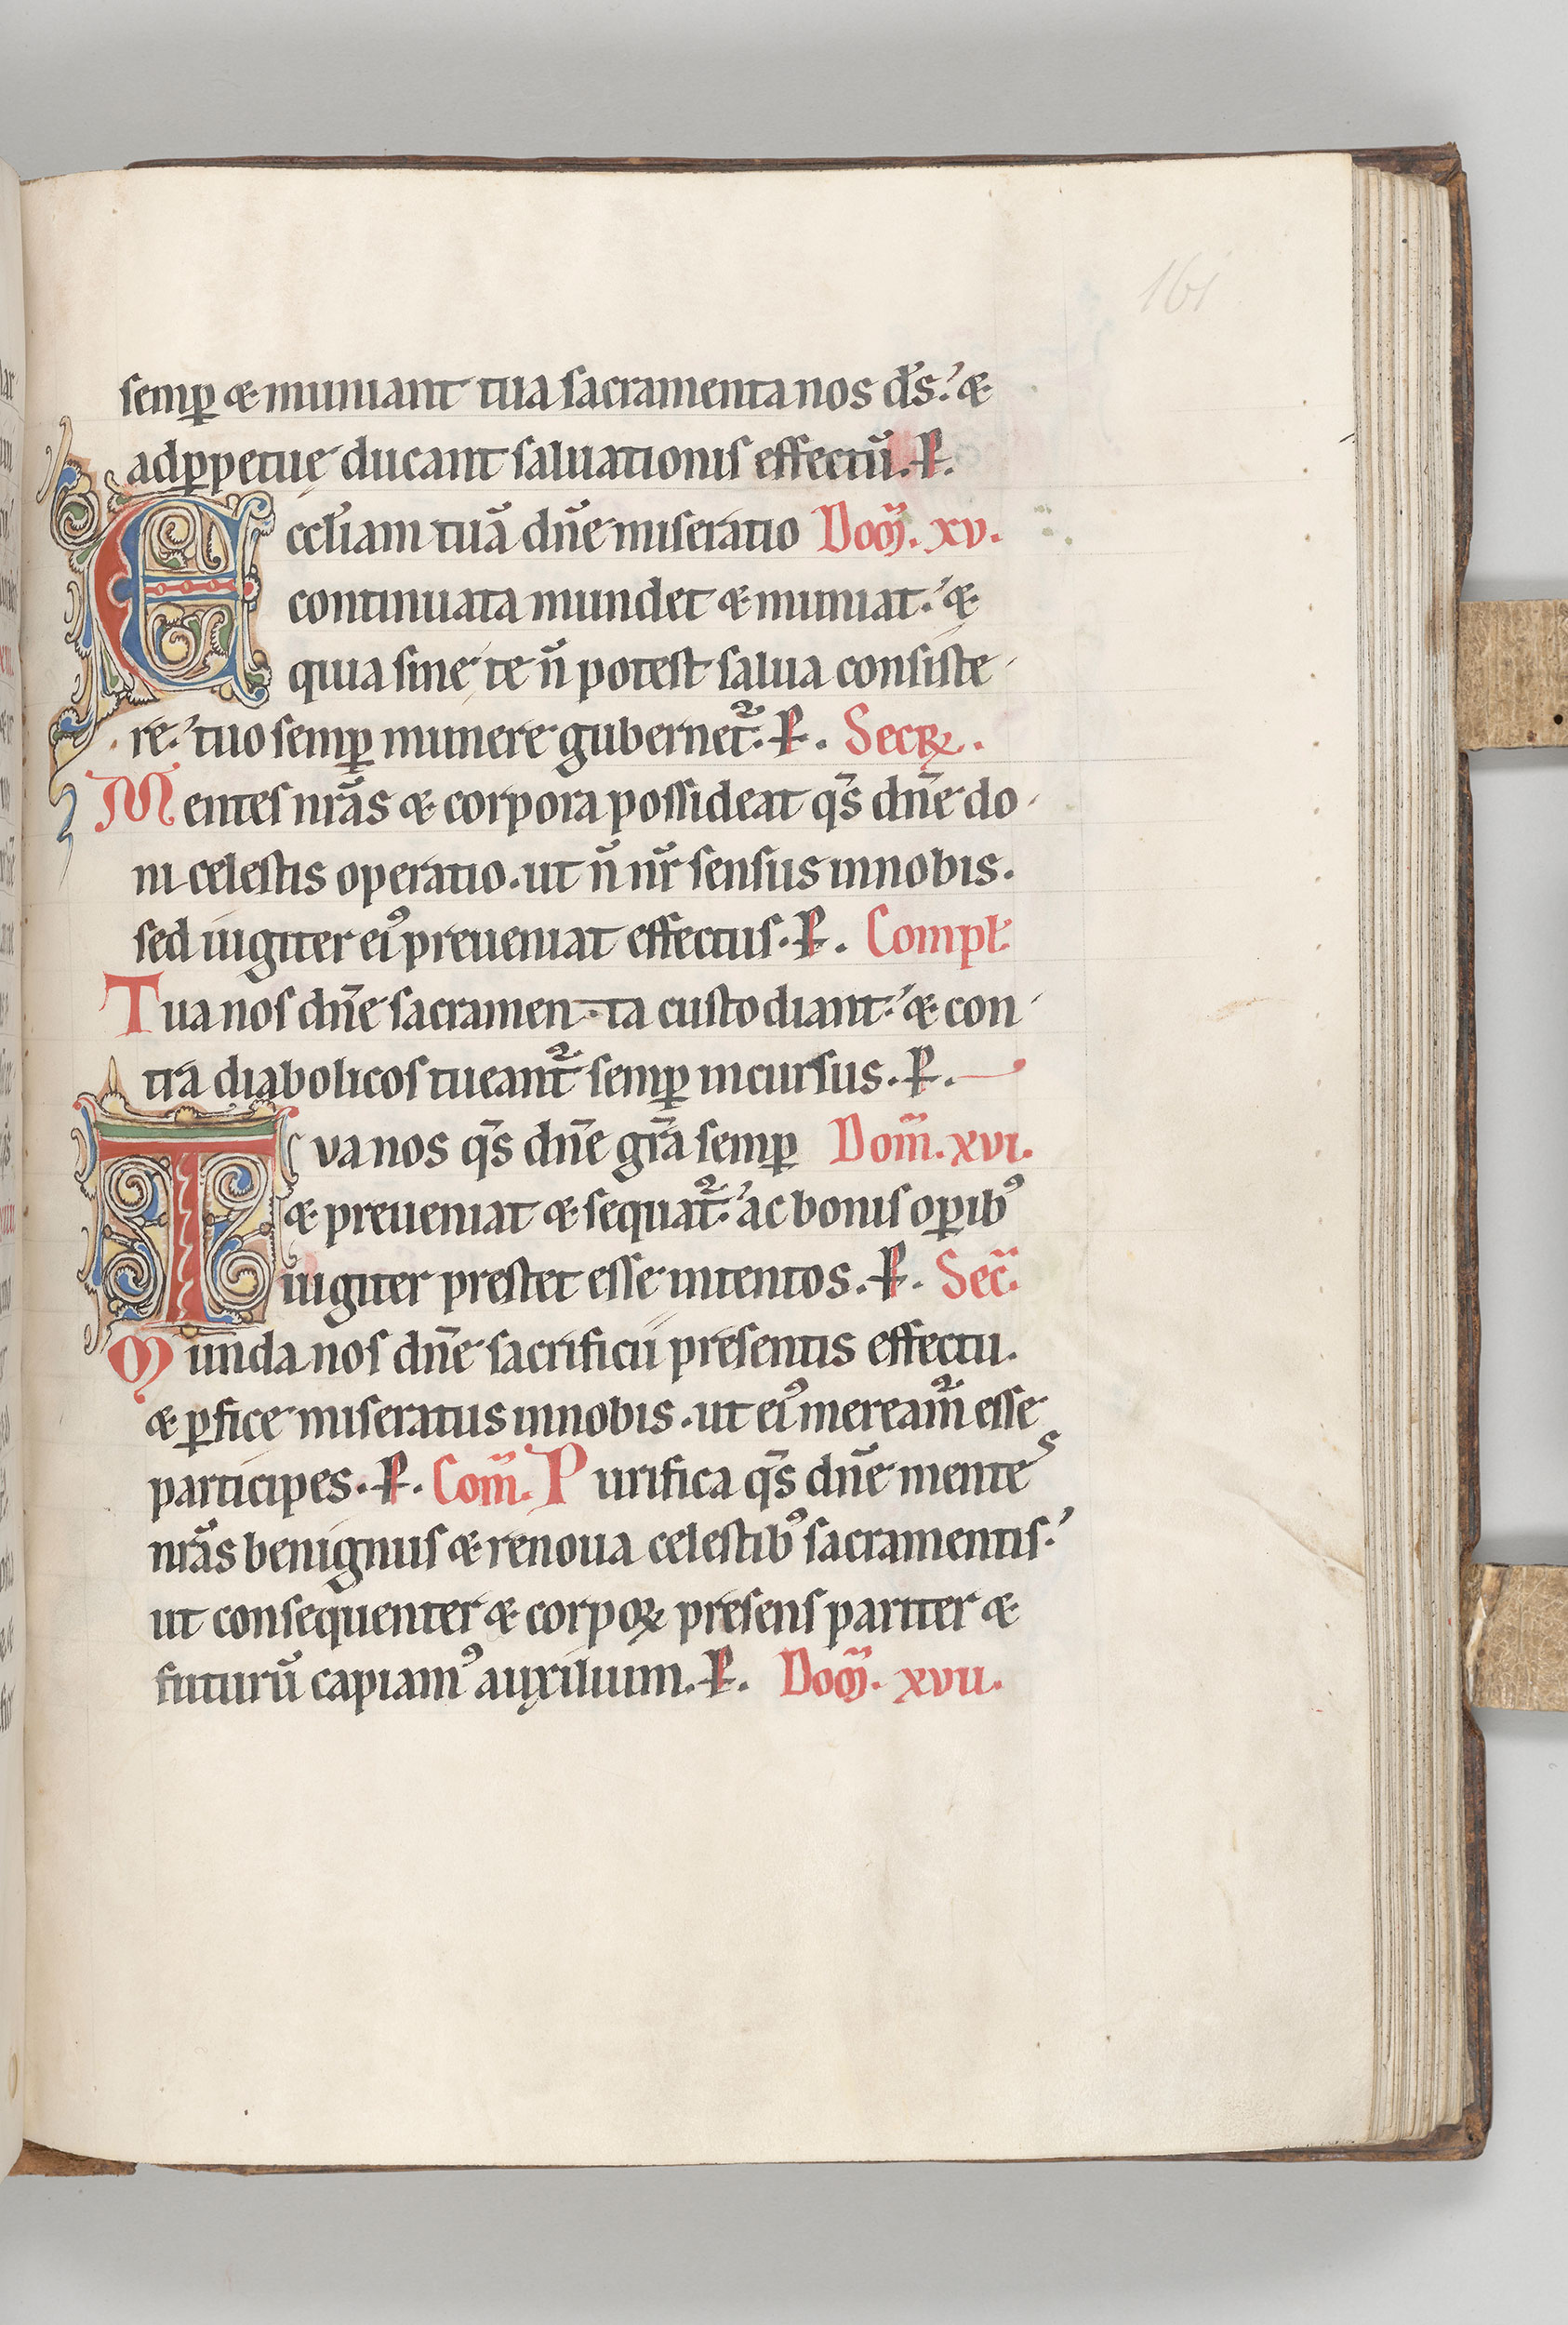 161
semꝑ & muniant tua sacramenta nos d̄s: &
adꝑpetuę ducant saluationis effectū. P.
Eccłiam tuā dn̄e miseratio Dom̄. xv.
continuata mundet & muniat: &
quia sine te n̄ potest salua consiste-
re: tuo semꝑ munere gubernet᷑. P. Secꝝ.
Mentes nr̄as & corpora possideat qs̄ dn̄e do-
ni celestis operatio. ut n̄ nr̄ sensus in nobis.
sed iugiter eiꝰ preueniat effectus. P. Compł.
Tua nos dn̄e sacramen-ta custodiant: & con-
tra diabolicos tueant᷑ semꝑ incursus. P.
Tva nos qs̄ dn̄e gr̄a semꝑ Dom̄. xvi.
& preueniat & sequat᷑: ac bonis oꝑibꝰ
iugiter prestet esse intentos. P. Sec̄.
Munda nos dn̄e sacrificii presentis effectu.
& ꝑfice miseratus in nobis. ut eiꝰ meream᷑ esse
participes. P. Com̄. Purifica qs̄ dn̄e mentes
nr̄as benignus & renoua celestibꝰ sacramentis:
ut consequenter & corpoꝝ presens pariter &
futurū capiamꝰ auxilium. P. Dom̄. xvii.